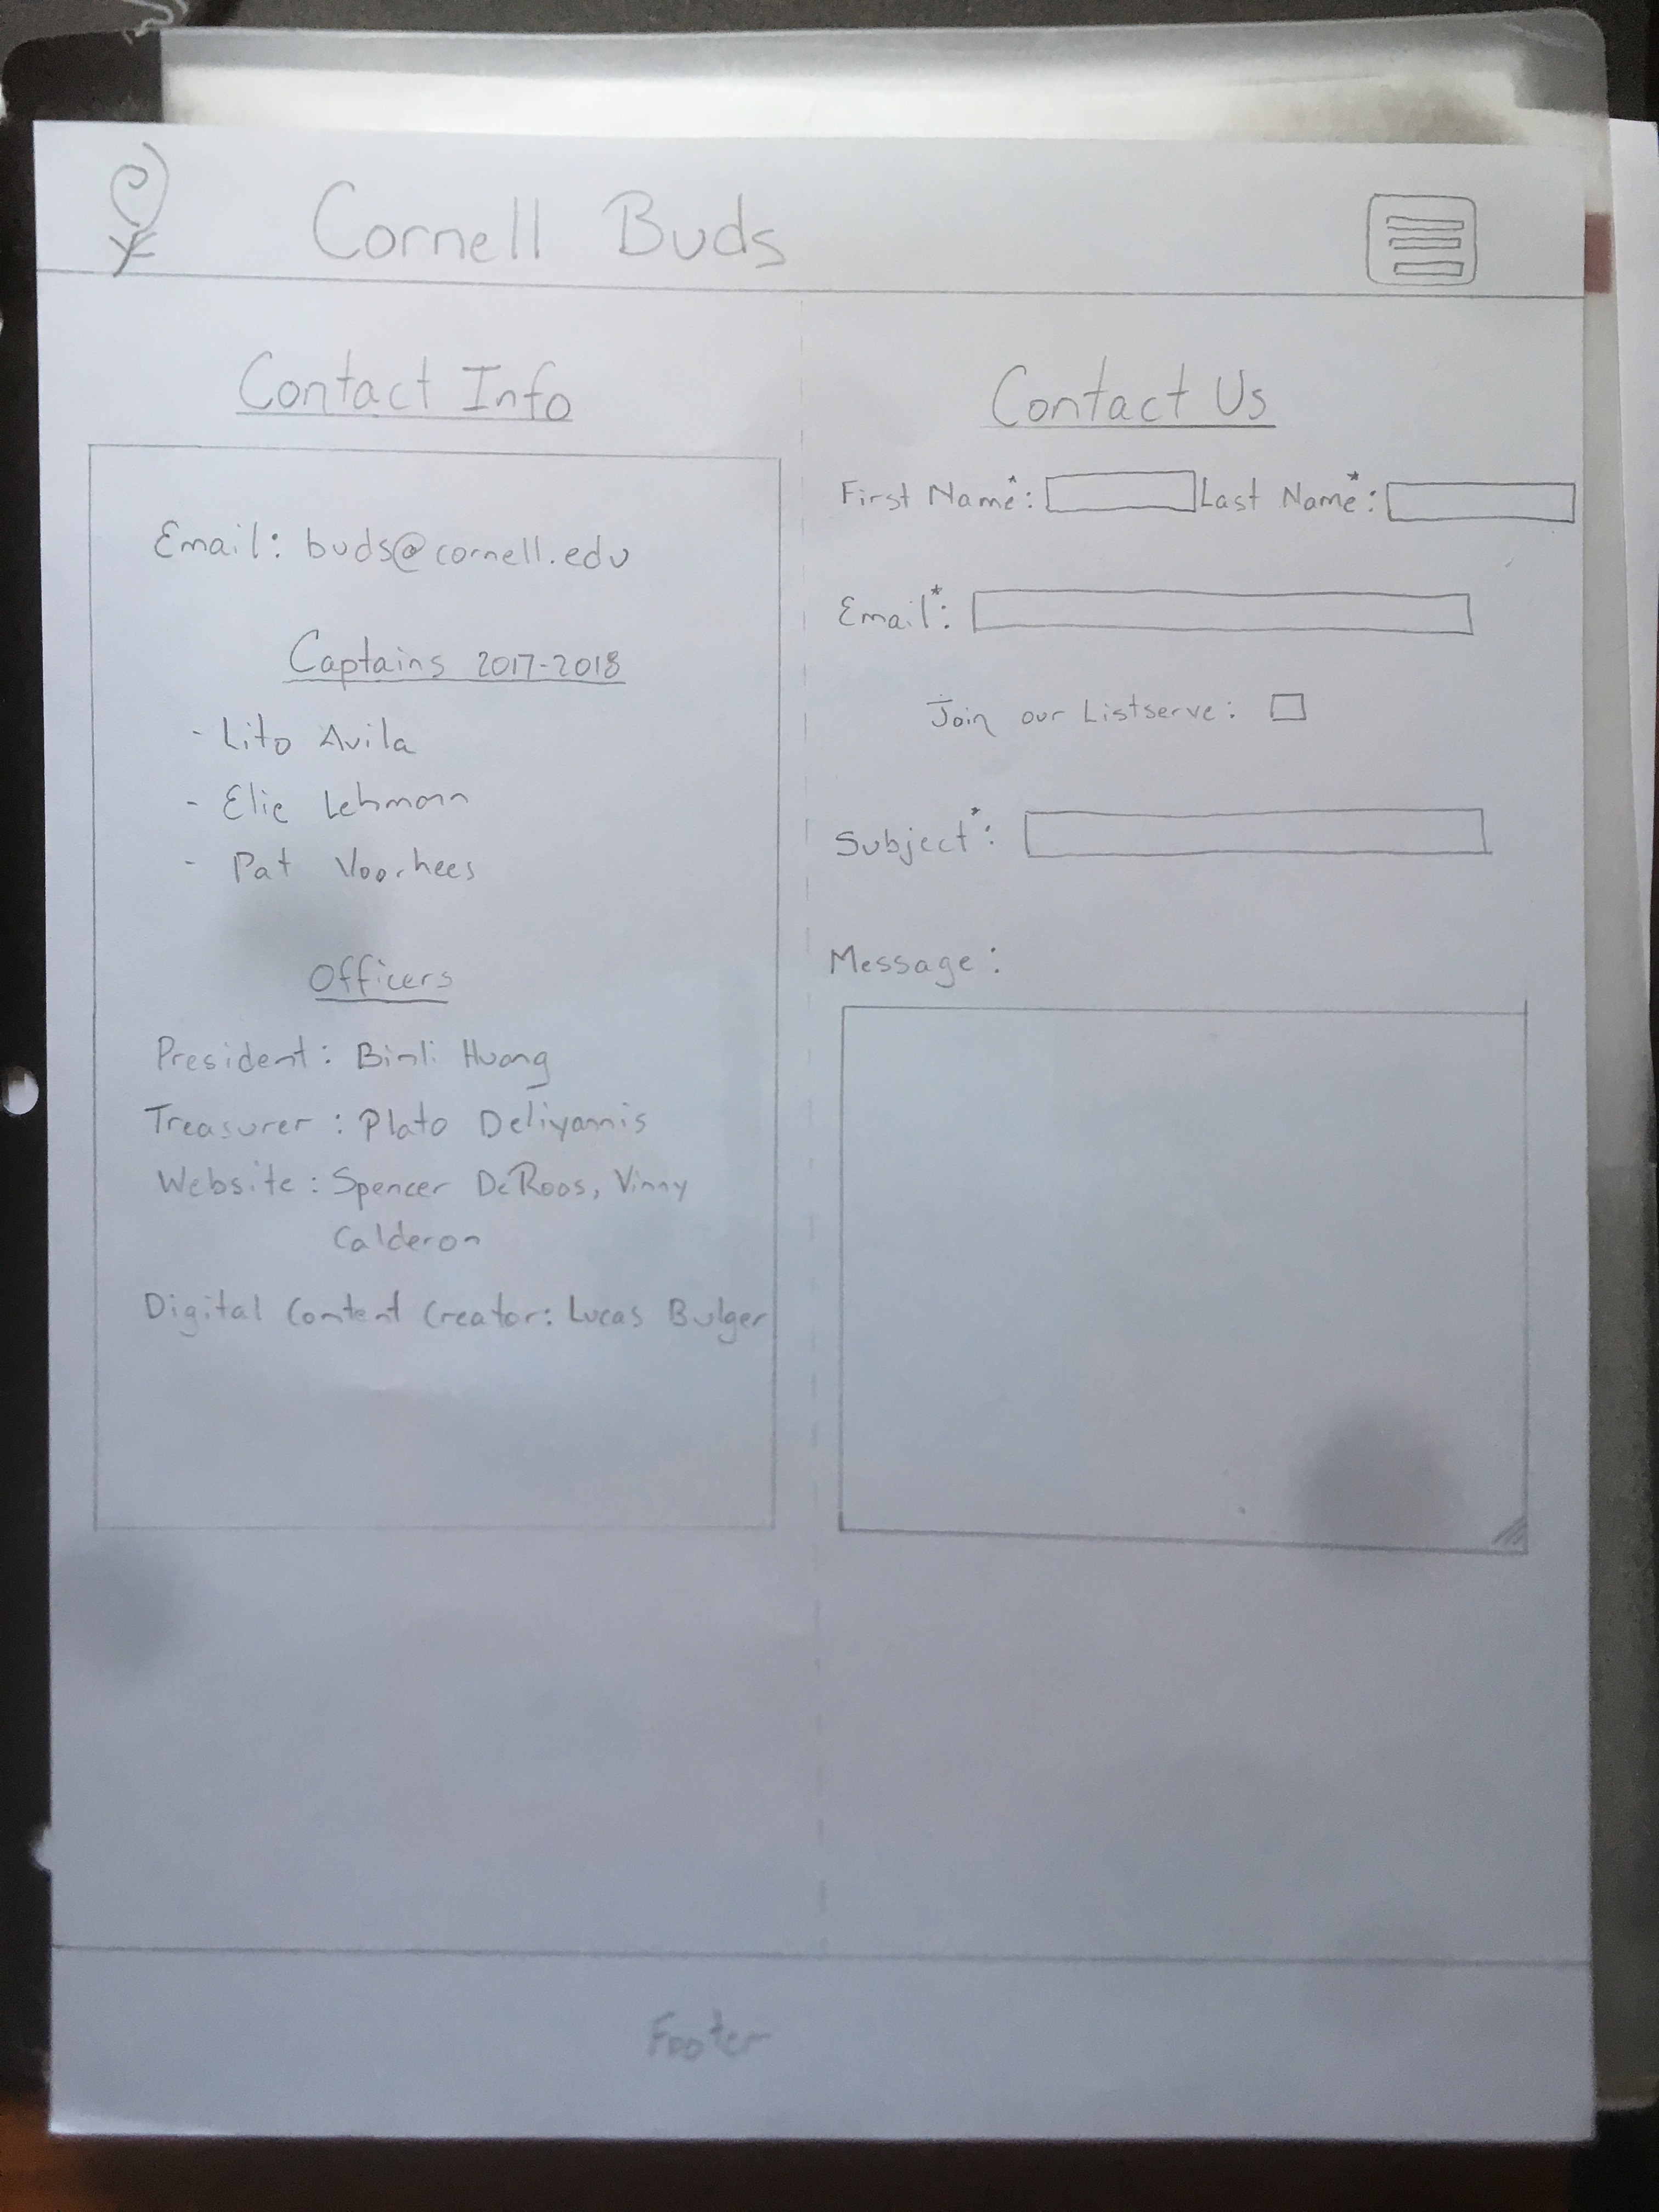 Cornell Buds
Contact Info
Email: buds@cornell.edu
Captains 2017-2018
- Lito Avila
- Elie Lehmann
- Pat Voorhees
Officers
President: Binli Huang
Treasurer: Plato Deliyannis
Website: Spencer DeRoos, Vinny
Calderon
Digital Content Creator: Lucas Bulger
Contact Us
First Name*: Last Name*:
Email*:
Join our Listserve:
Subject*:
Message:
Footer